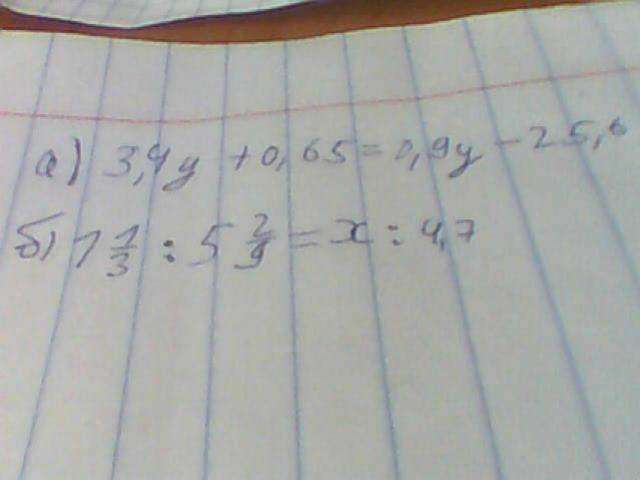 а) 3,4y + 0,65 = 0,9y - 25,6
б) 1 1/3 : 5 2/9 = x : 4,7